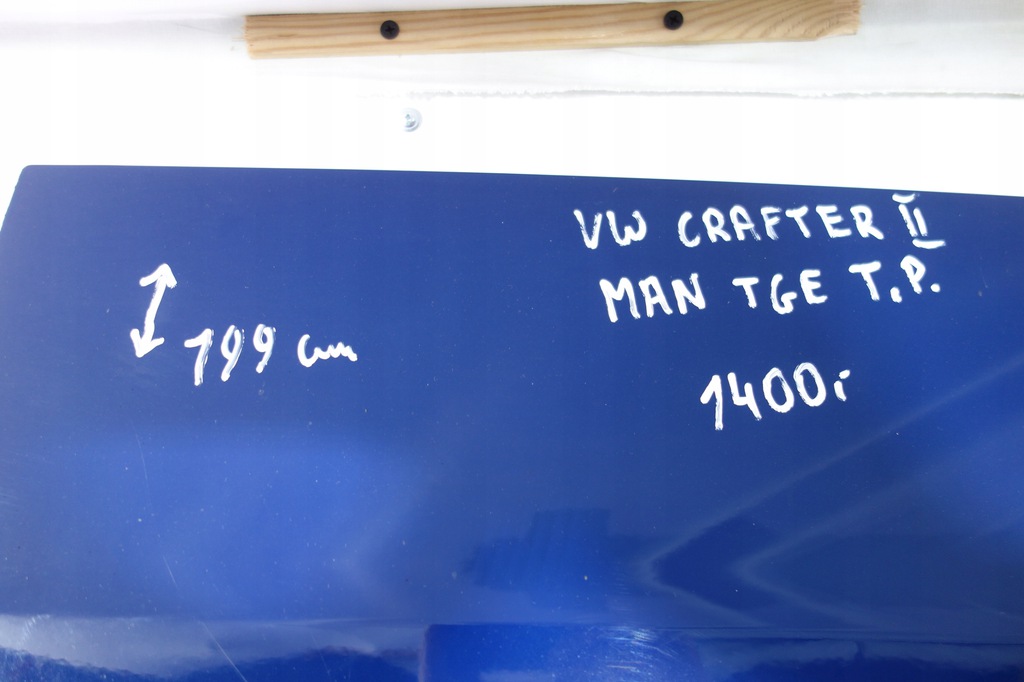 VW CRAFTER II
MAN TGE T.P.
199 cm
1400i